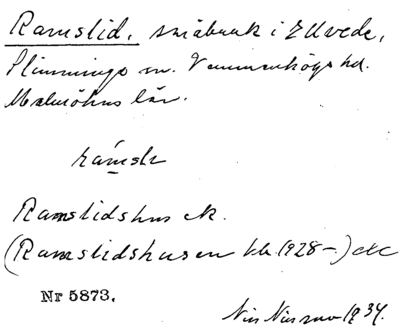 Ramslid, småbruk i Elvede,
Slimminge sn. Vemmenhögs hd.
Malmöhus län.
Ramslidshus ek.
(Ramslidshusen kbl. 1928–) etc
Nr 5873.
Nils Nilsson 1934.